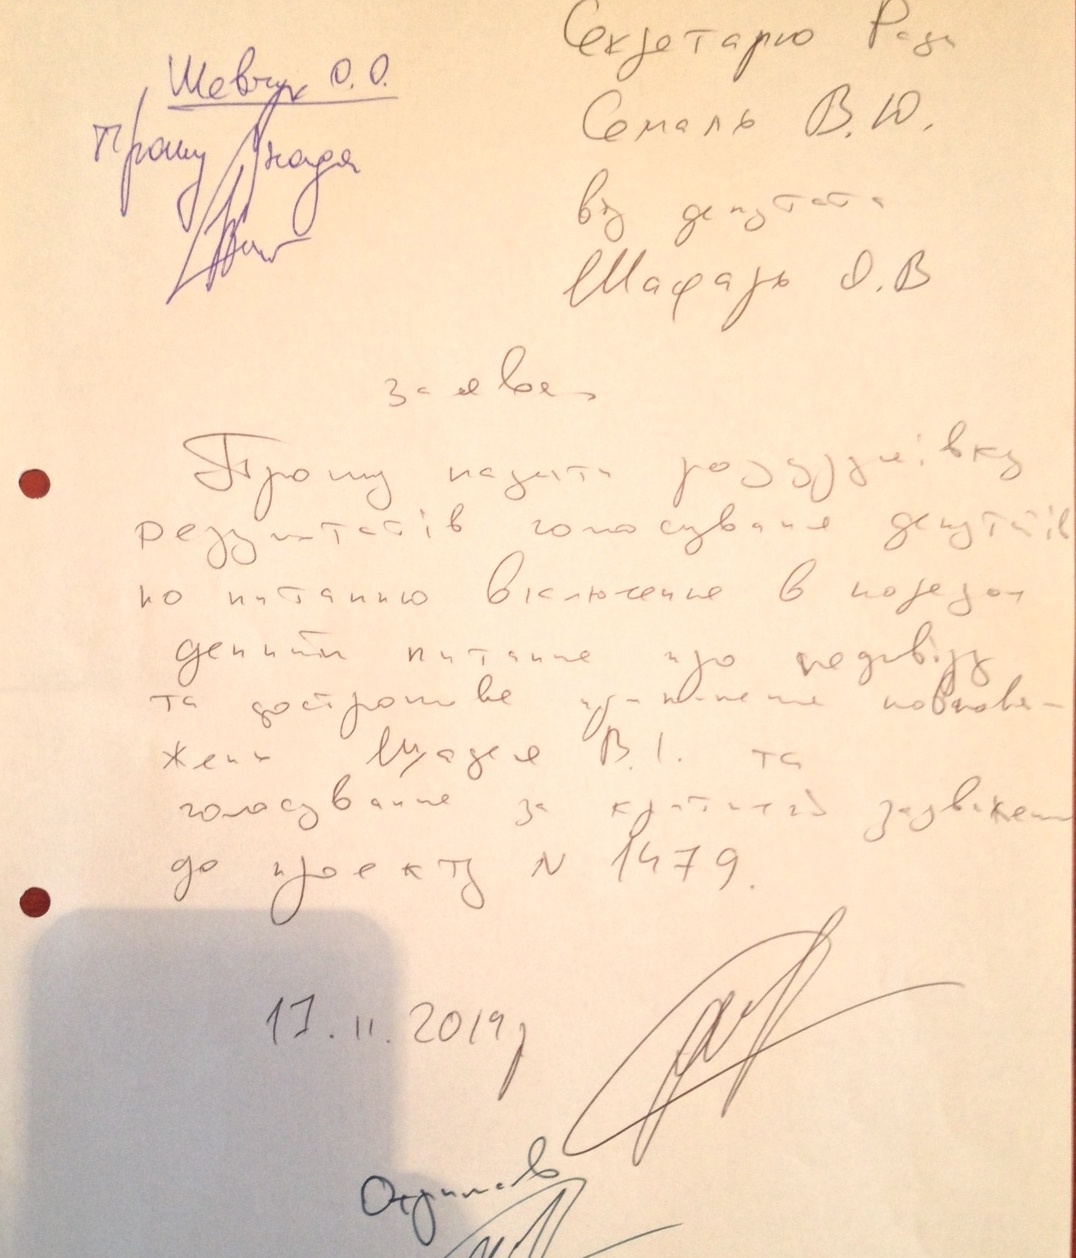 Секретарю Ради
Семаль В.Ю.
від депутата
Шафарь О.В
Шевчук О.О.
Прошу надати
заява
Прошу надати роздруківку
результатів голосування депутатів
по питанню включення в порядок
денний питання про недовіру
та дострокове припинення повнова-
жень Щадея В.І. та
голосування за
до проекту N 1479.
17.11.2019р
Отримав